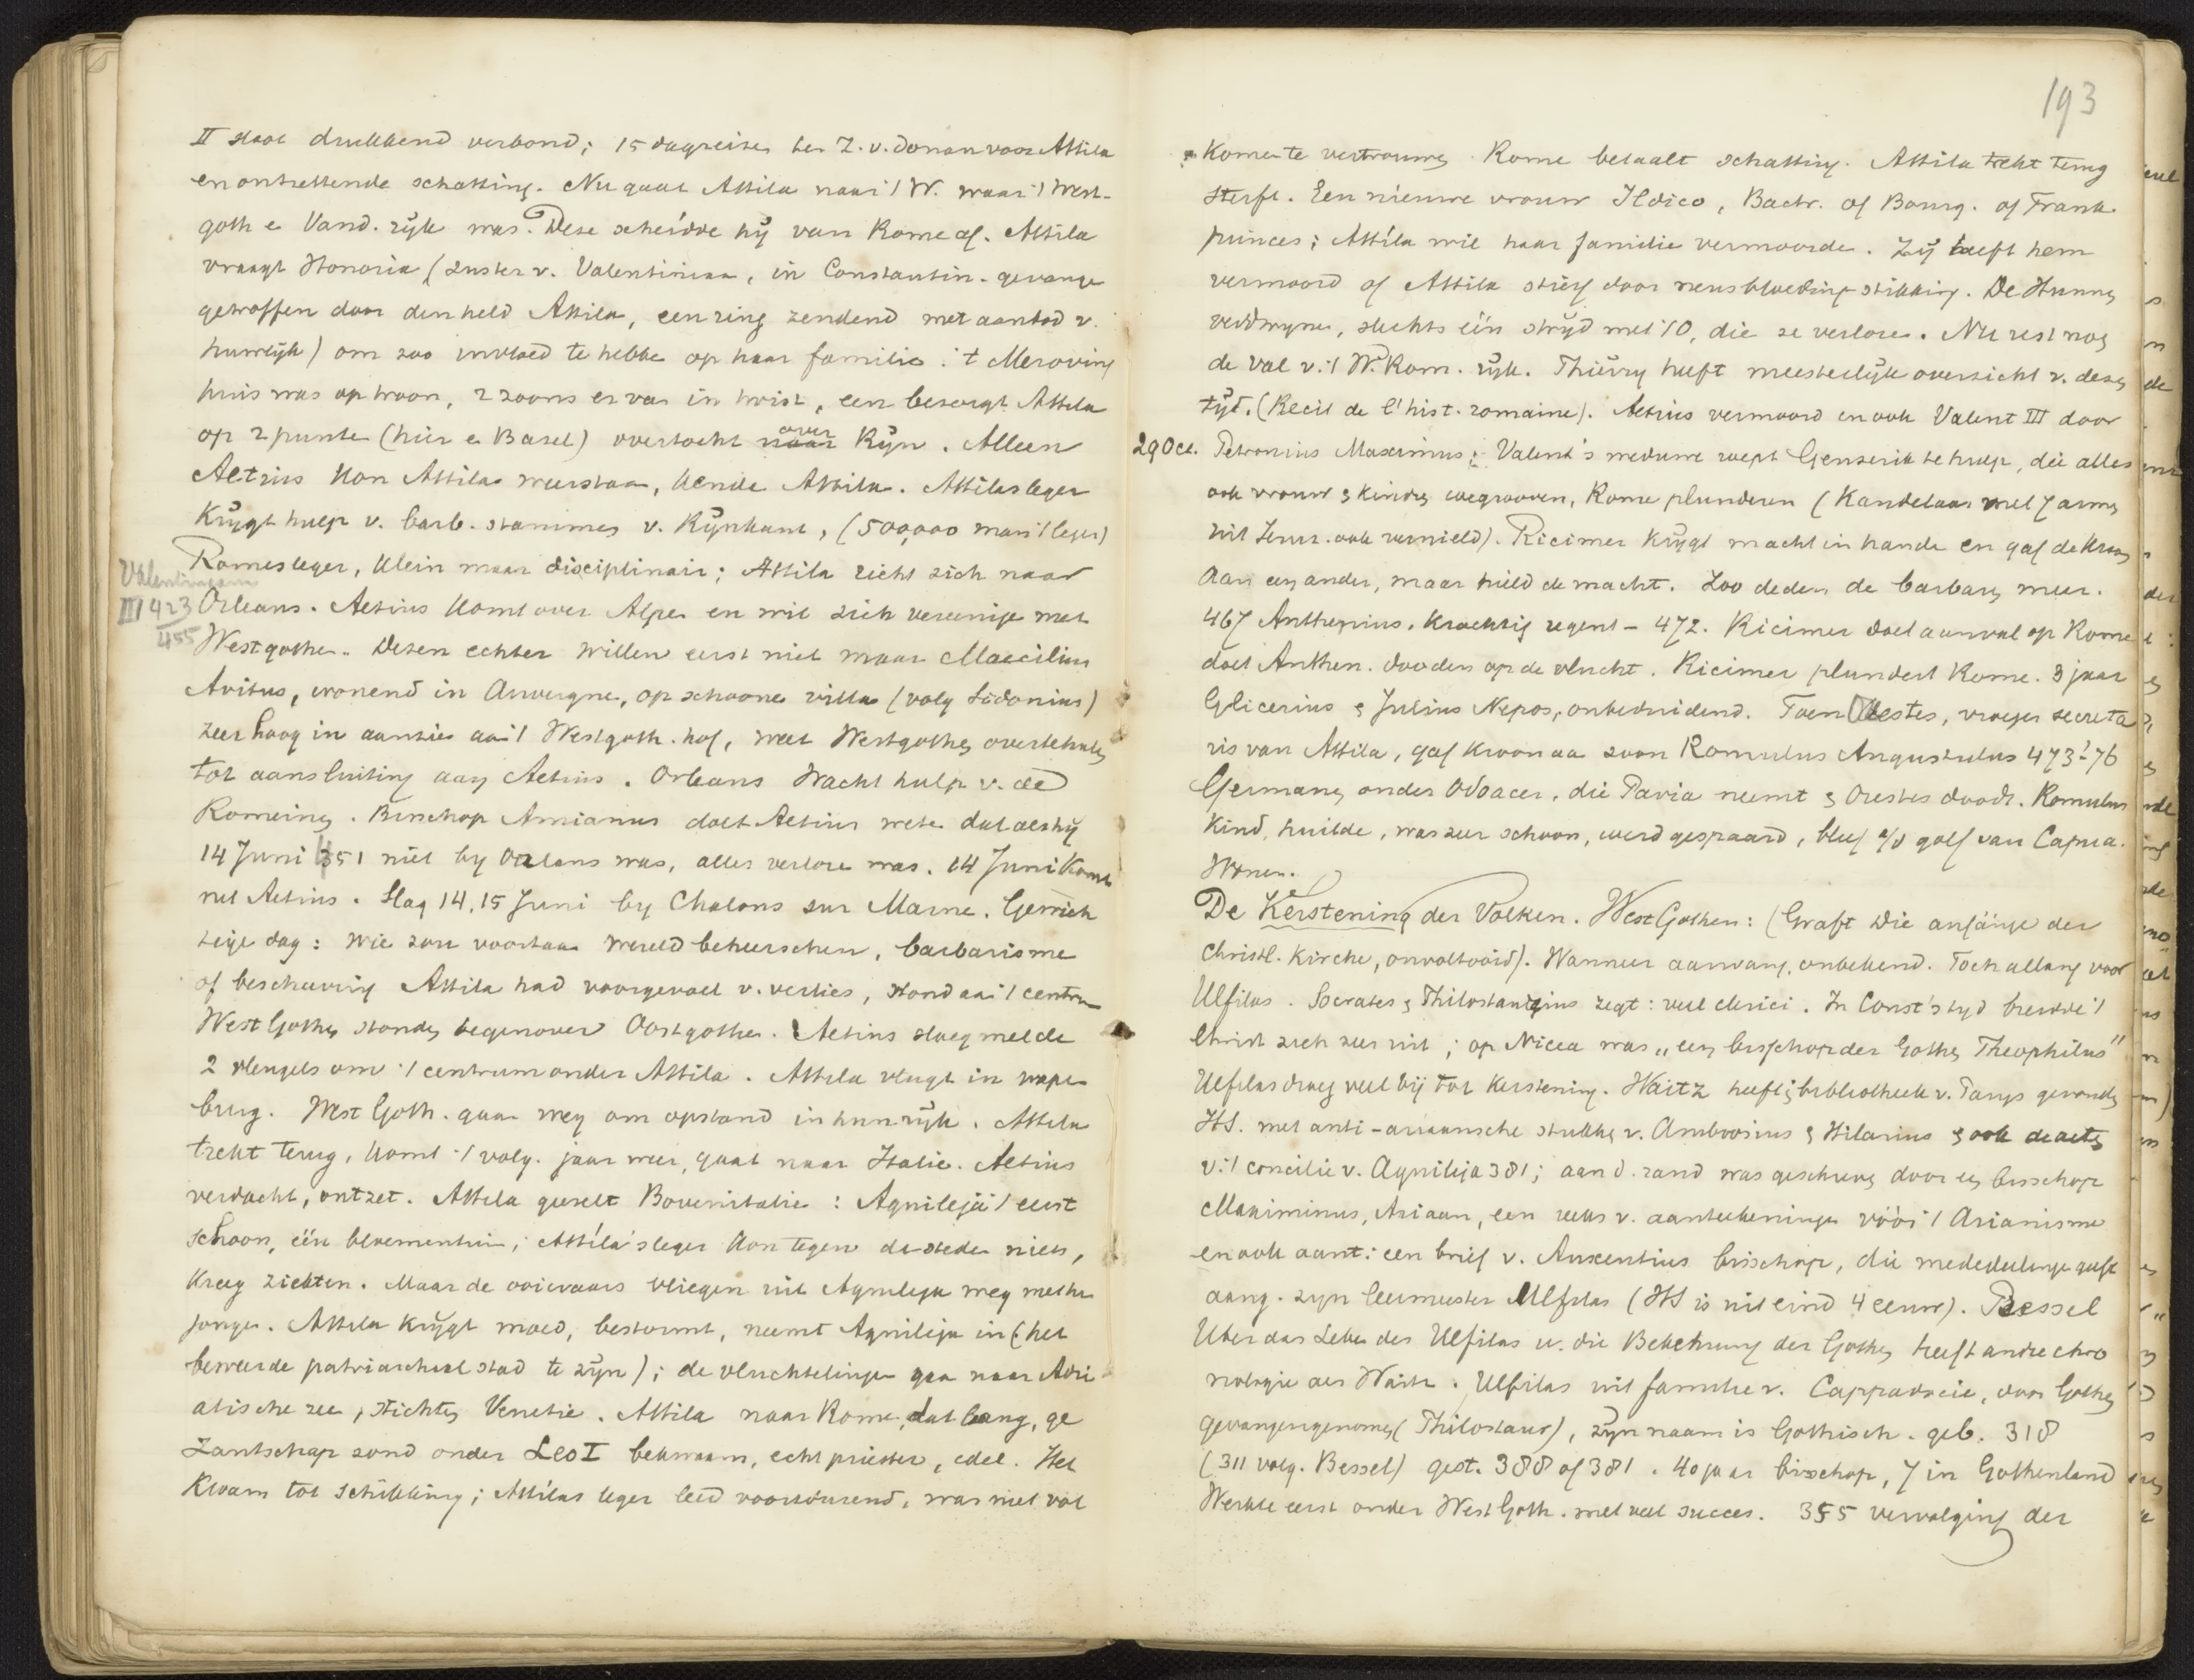 II sloot drukkend verbond; 15 dagreizen ten Z. v. Donau voor Attila
en ontzettende schatting. Nu gaat Attila naar 't W. waar 't West-
goth e Vand. rijk was. Deze scheidde hij van Rome af. Attila
vraagt Honoria (zuster v. Valentiniaan, in Constantin. gevange
getroffen door den held Attila, een ring zendend met aanbod v.
huwlijk) om zoo invloed te hebbe op haar familie. 't Meroving
huis was op troon, 2 zoons er van in twist, een bezorgt Attila
op 2 punte (hier e Basel) overtocht naar over Rijn. Alleen
Aetius kon Attila weerstaan, kende Attila. Attilas leger
krijgt hulp v. barb. stammes v. Rijnkant, (500,000 man 't leger)
Romes leger, klein maar disciplinair; Attila richt zich naar
Valentiniaan
III 423
455
Orleans. Aetius komt over Alpe en wil zich vereenige met
Westgothe. Dezen echter willen eerst niet maar Maecilius
Avitus, wonend in Auvergne, op schoone villa (volg Sidonius)
zeer hoog in aanzie aa 't Westgoth. hof, weet Westgothes overtehale
tot aansluiting aan Aetius. Orleans wacht hulp v. de
Romeins. Bisschop Amianus doet Aetius wete dat als hij
14 Juni 451 niet by Orleans was, alles verlore was. 14 Juni komt
net Aetius. Slag 14, 15 Juni by Chalons sur Marne. Gewich
teige dag: wie zou voortaan wereld beheerschen, barbarisme
of beschaving Attila had voorgevoel v. verlies, stond aa 't centru
West Gothes stondes tegenover Oostgothe. Aetius sloeg met de
2 vleugels om 't centrum onder Attila. Attila vlugt in wape
burg. West Goth. gaan weg om opstand in hun rijk. Attila
trekt terug, komt 't volg. jaar weer, gaat naar Italie. Aetius
verdacht, ontzet. Attila geeselt Bovenitalie: Aquileja 't eerst
schoon, één bloementuin; Attila's leger kon tegen de stede niets,
kreeg ziekten. Maar de ooievaars vliegen uit Aquileja weg met hu
jonge. Attila krijgt moed, bestormt, neemt Aquileja in (het
beweerde patriarchaal stad te zijn); de vluchtelinge gaa naar Adri
atische zee, stichtes Venetie. Attila naar Rome, dat bang, ge
zantschap zond onder Leo I bekwaam, echt priester, edel. Het
kwam tot schikking; Attilas leger leed voortdurend, was niet vol
193
komen te vertrouwes Rome betaalt schatting. Attila trekt terug
sterft. Een nieuwe vrouw Ildico, Bactr. of Bourg. of Frank.
princes; Attila wil haar familie vermoorde. Zij heeft hem
vermoord of Attila stierf door neusbloeding-stikking. De Hunnes
verdwyne, slechts één strijd met 't O, die ze verlore. Nu rest nog
de val v. 't W. Rom. rijk. Thierry heeft meesterlijk overzicht v. dezes
tijd. (Récit de l'hist. romaine). Aetius vermoord en ook Valent III door
29 Oct. Petronius Maximus; Valent's weduwe roept Genserik te hulp, die alles
ook vrouw & kindres wegrooven, Rome plunderen (Kandelaar met 7 armes
uit Jeruz. ook vernield). Ricimer krijgt macht in hande en gaf de kroon
aan een ander, maar hield de macht. Zoo deden de barbares meer.
467 Anthemius, krachtig regent - 472. Ricimer doet aanval op Rome
doet Anthem. dooden op de vlucht. Ricimer plundert Rome. 3 jaar
Glicerius & Julius Nepos, onbeduidend. Toen Orestes, vroeger secreta
ris van Attila, gaf kroon aa zoon Romulus Augustulus 473?-76
Germanes onder Odoacer, die Pavia neemt & Orestes doodt. Romulus
kind, huilde, was zeer schoon, werd gespaard, bleef a/d golf van Capua
wonen.
De Kerstening der Volken. West Gothen: (Graft Die anfänge der
Christl. Kirche, onvoltooid). Wanneer aanvang, onbekend. Toch al lang voor
Ulfilas. Socrates & Philostorgius zegt: veel clerici. In Const's tyd breidde 't
Christ zich zeer uit; op Nicea was „een bisschop der Gothes Theophilus"
Ulfilas droeg veel bij tot kerstening. Waitz heeft i bibliotheek v. Parys gevondes
HS. met anti-ariaansche stukkes v. Ambrosius & Hilarius & ook de actes
v. 't concilie v. Aquileja 381; aan d. rand was geschreves door een bisschop
Maximinus, Ariaan, een reeks v. aanteekeninge vóór 't Arianisme
en ook aant: een brief v. Auxentius bisschop, die mededeelinge geeft
aang. zyn leermeester Ulfilas (HS is uit eind 4 eeuw). Bessel
Uber das Lebe des Ulfilas u. die Bekehrung der Gothes heeft andre chro
nologie als Waitz. Ulfilas uit familie v. Cappadocie, door Gothes
gevangengenomes (Philostour), zijn naam is Gothisch. geb. 318
(311 volg. Bessel) gest. 388 of 381. 40 jaar bisschop, 7 in Gothenland
Werkte eerst onder West Goth. met veel succes. 355 vervolging der